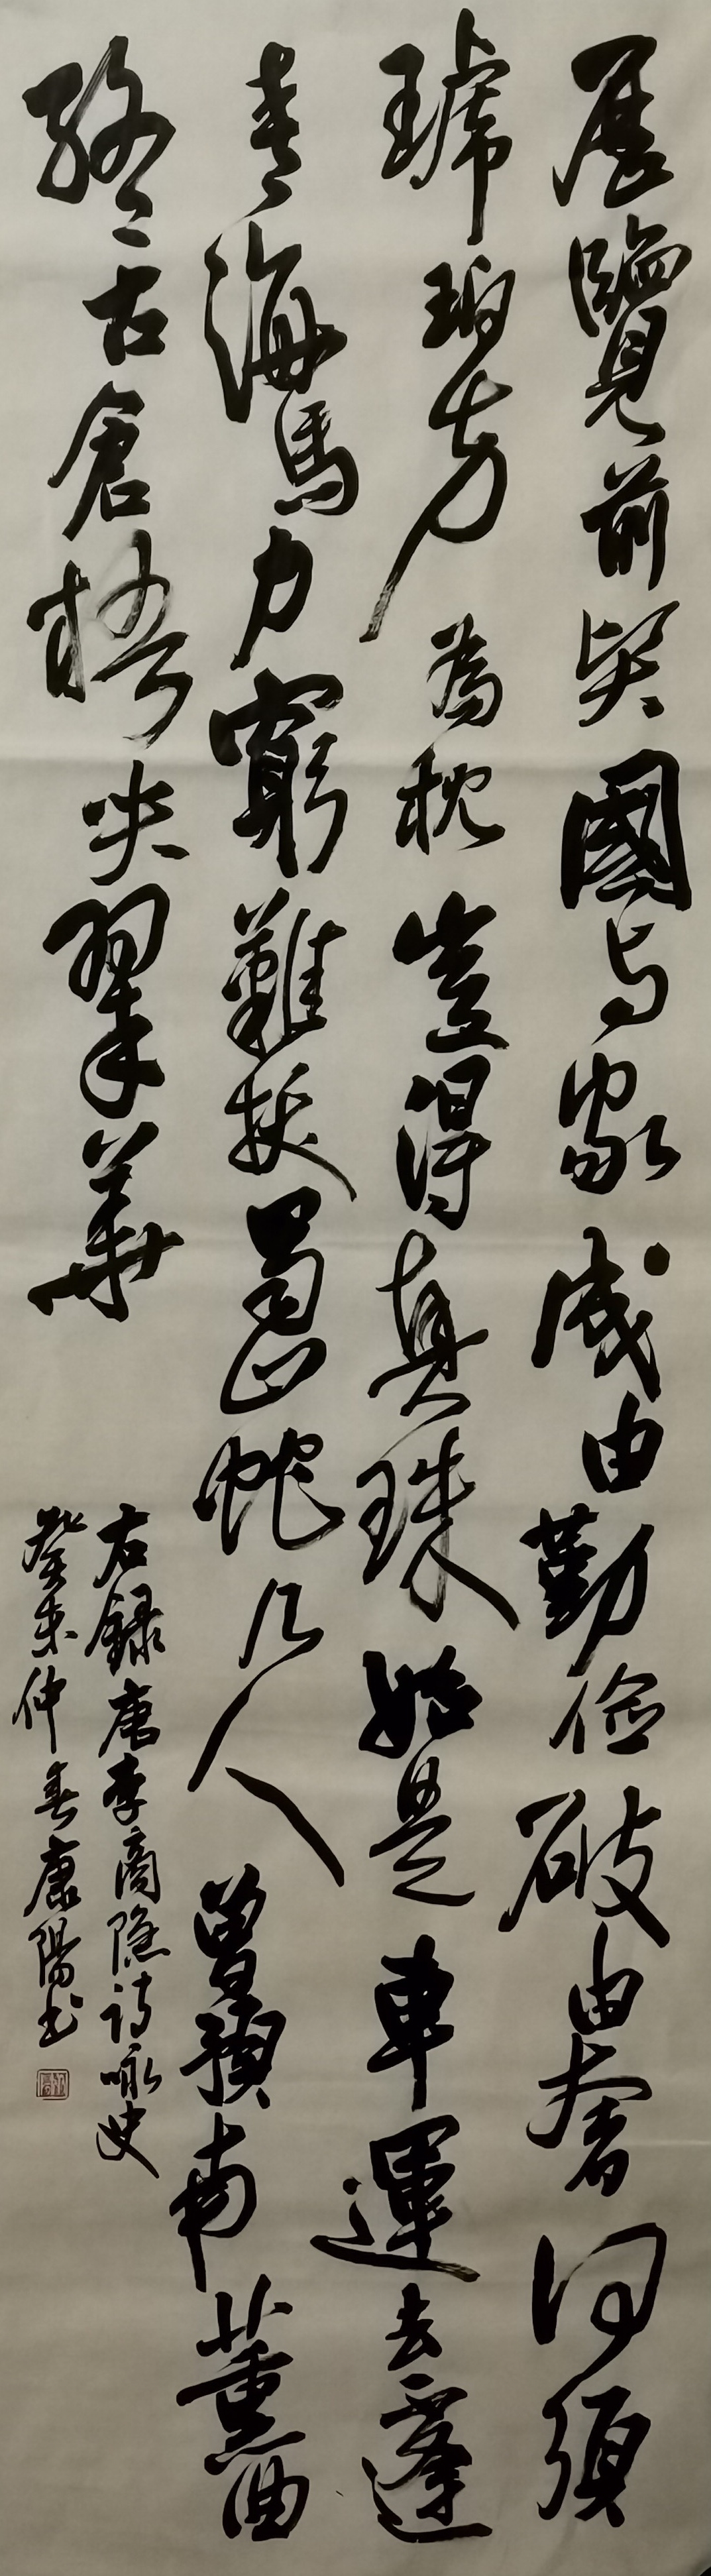 歷覽前賢國与家成由勤儉破由奢何須
琥珀方為枕豈得真珠始是車運去不逢
青海馬力窮難拔蜀山蛇几人曾預南薰曲
終古倉梧哭翠華
右録唐李商隱詩咏史
癸未仲春康陽书